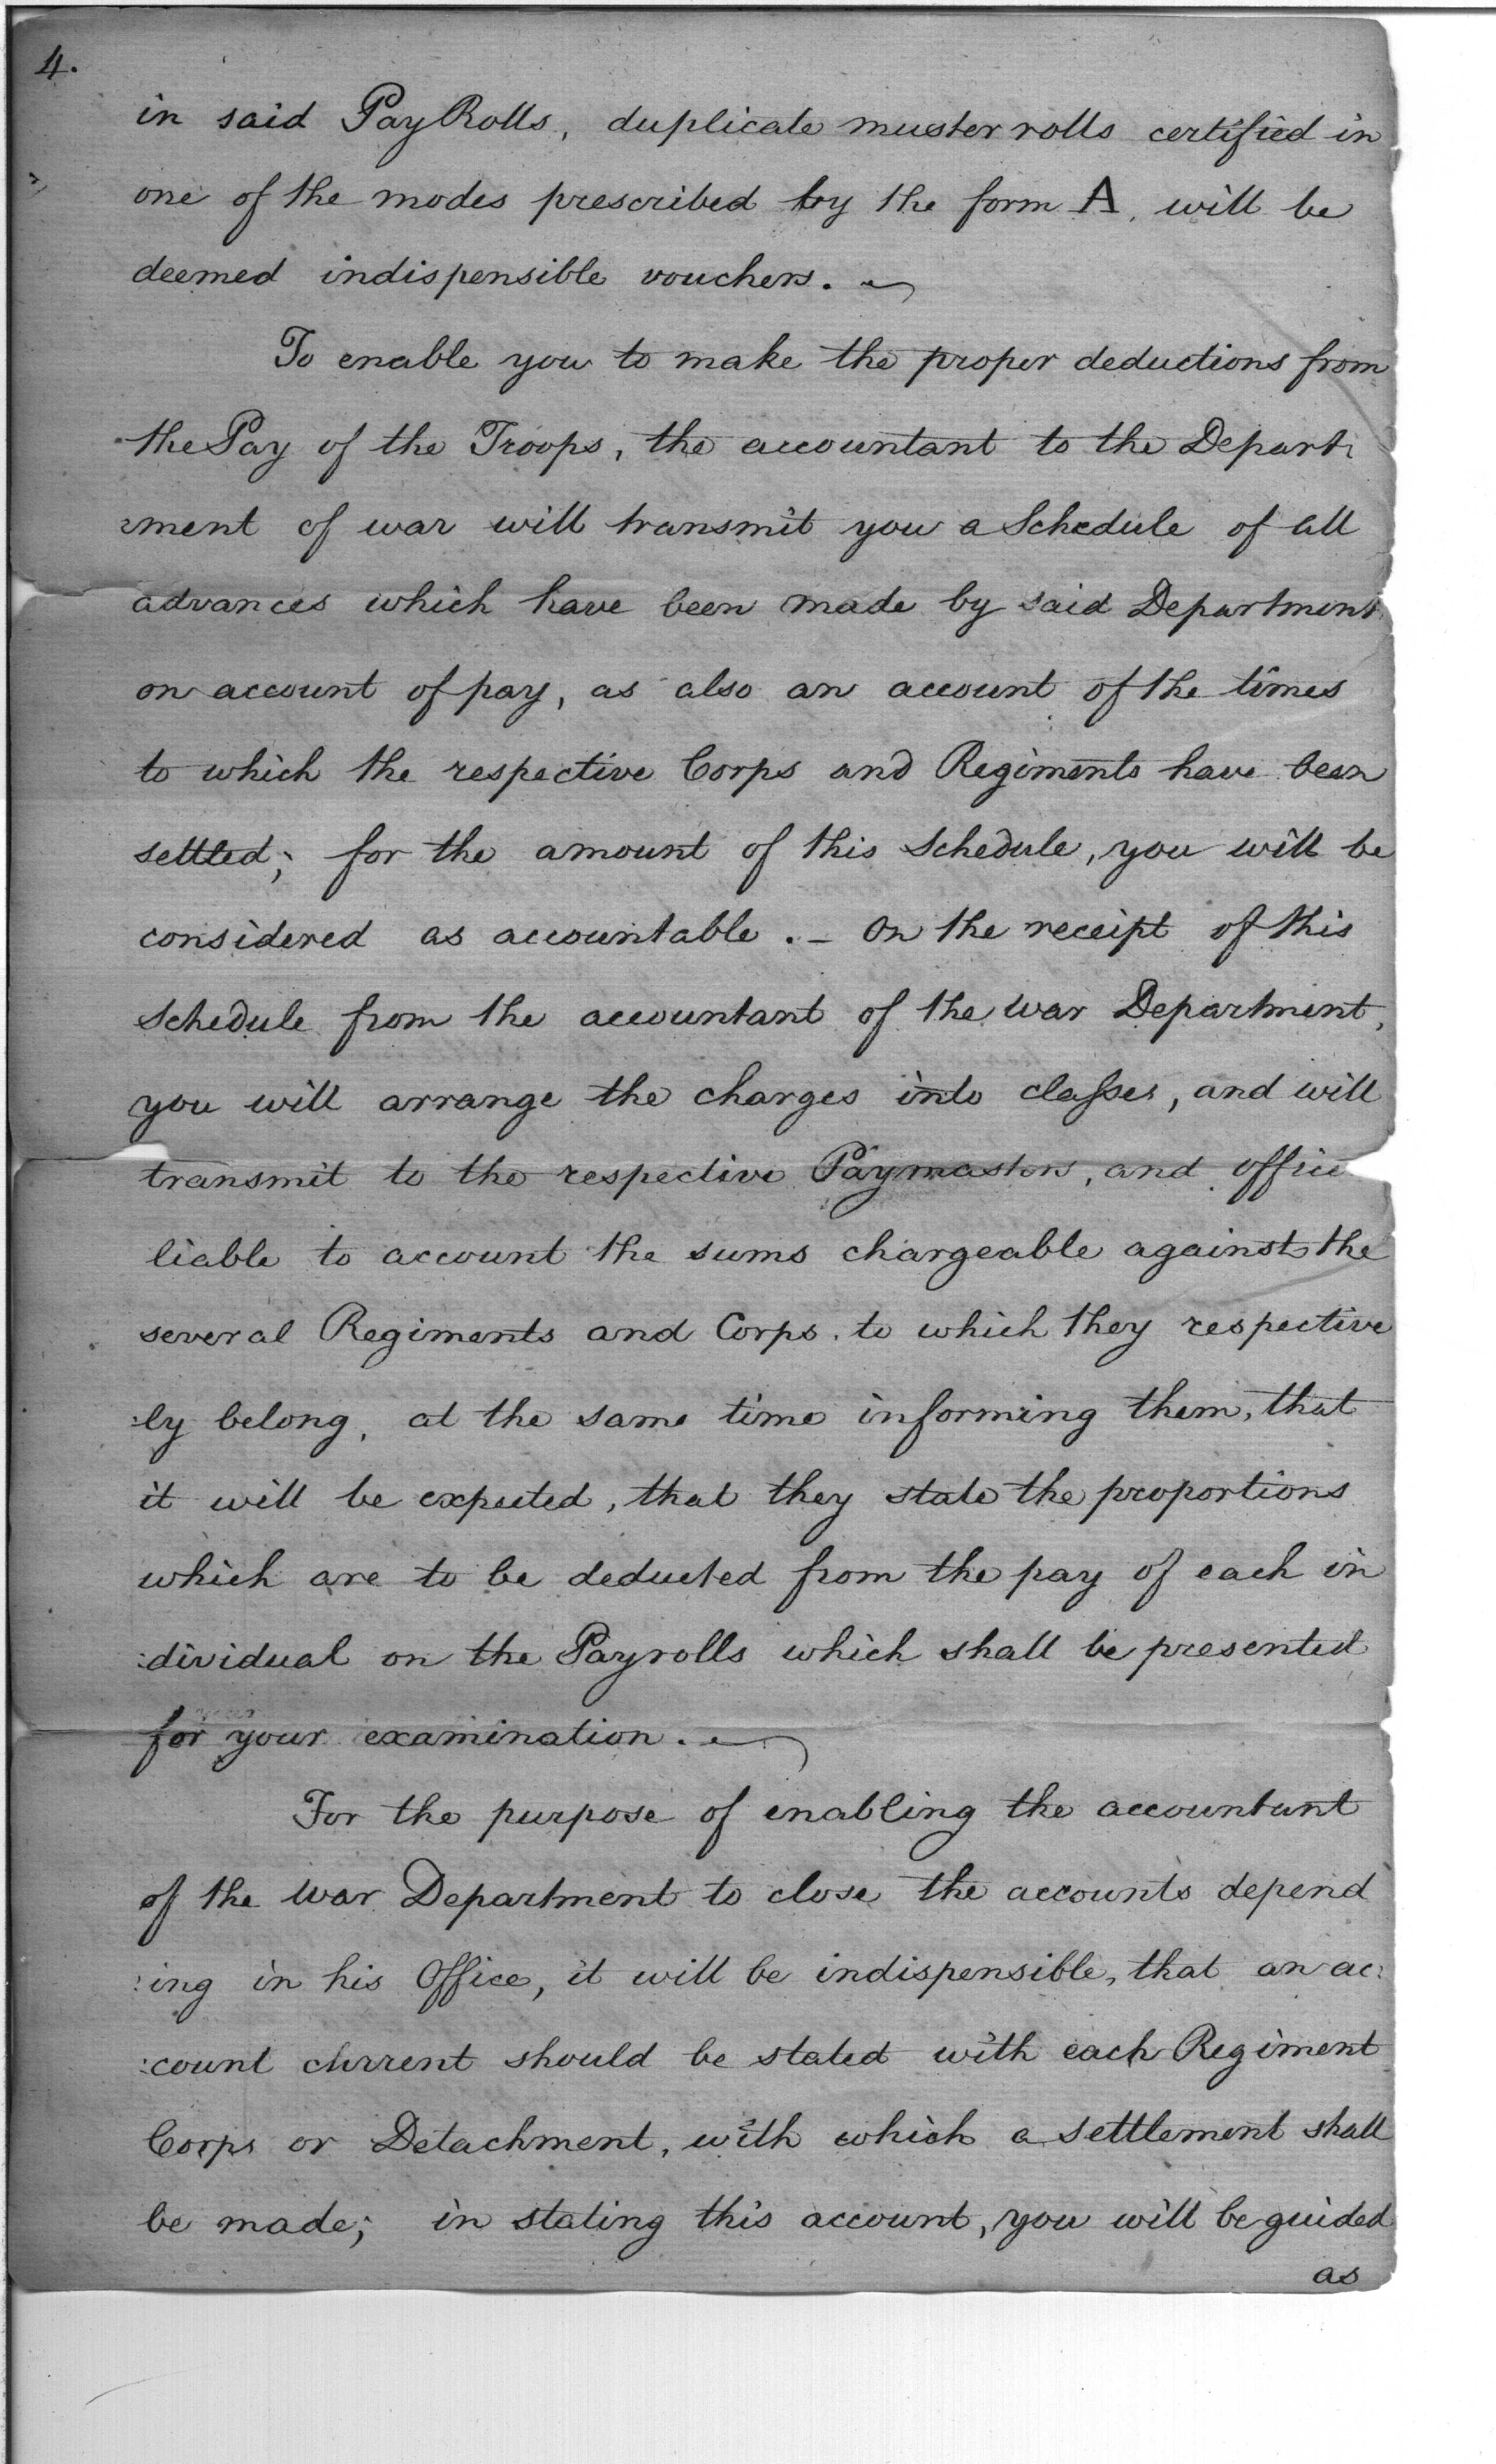 4.
in said Pay Rolls, duplicate muster rolls certified in
one of the modes prescribed by the form A, will be
deemed indispensible vouchers.
To enable you to make the proper deductions from
the Pay of the Troops, the accountant to the Depart:
:ment of war will transmit you a Schedule of all
advances which have been made by said Department
on account of pay, as also an account of the times
to which the respective Corps and Regiments have been
settled; for the amount of this Schedule, you will be
considered as accountable. - On the receipt of this
Schedule from the accountant of the war Department,
you will arrange the charges into classes, and will
transmit to the respective Paymasters, and office
liable to account the sums chargeable against the
several Regiments and Corps. to which they respective
:ly belong, at the same time informing them, that
it will be expected, that they state the proportions
which are to be deducted from the pay of each in
:dividual on the Payrolls which shall be presented
for your examination.
For the purpose of enabling the accountant
of the war Department to close the accounts depend
:ing in his Office, it will be indispensible, that an ac:
:count current should be stated with each Regiment
Corps or Detachment, with which a settlement shall
be made; in stating this account, you will be guided
as